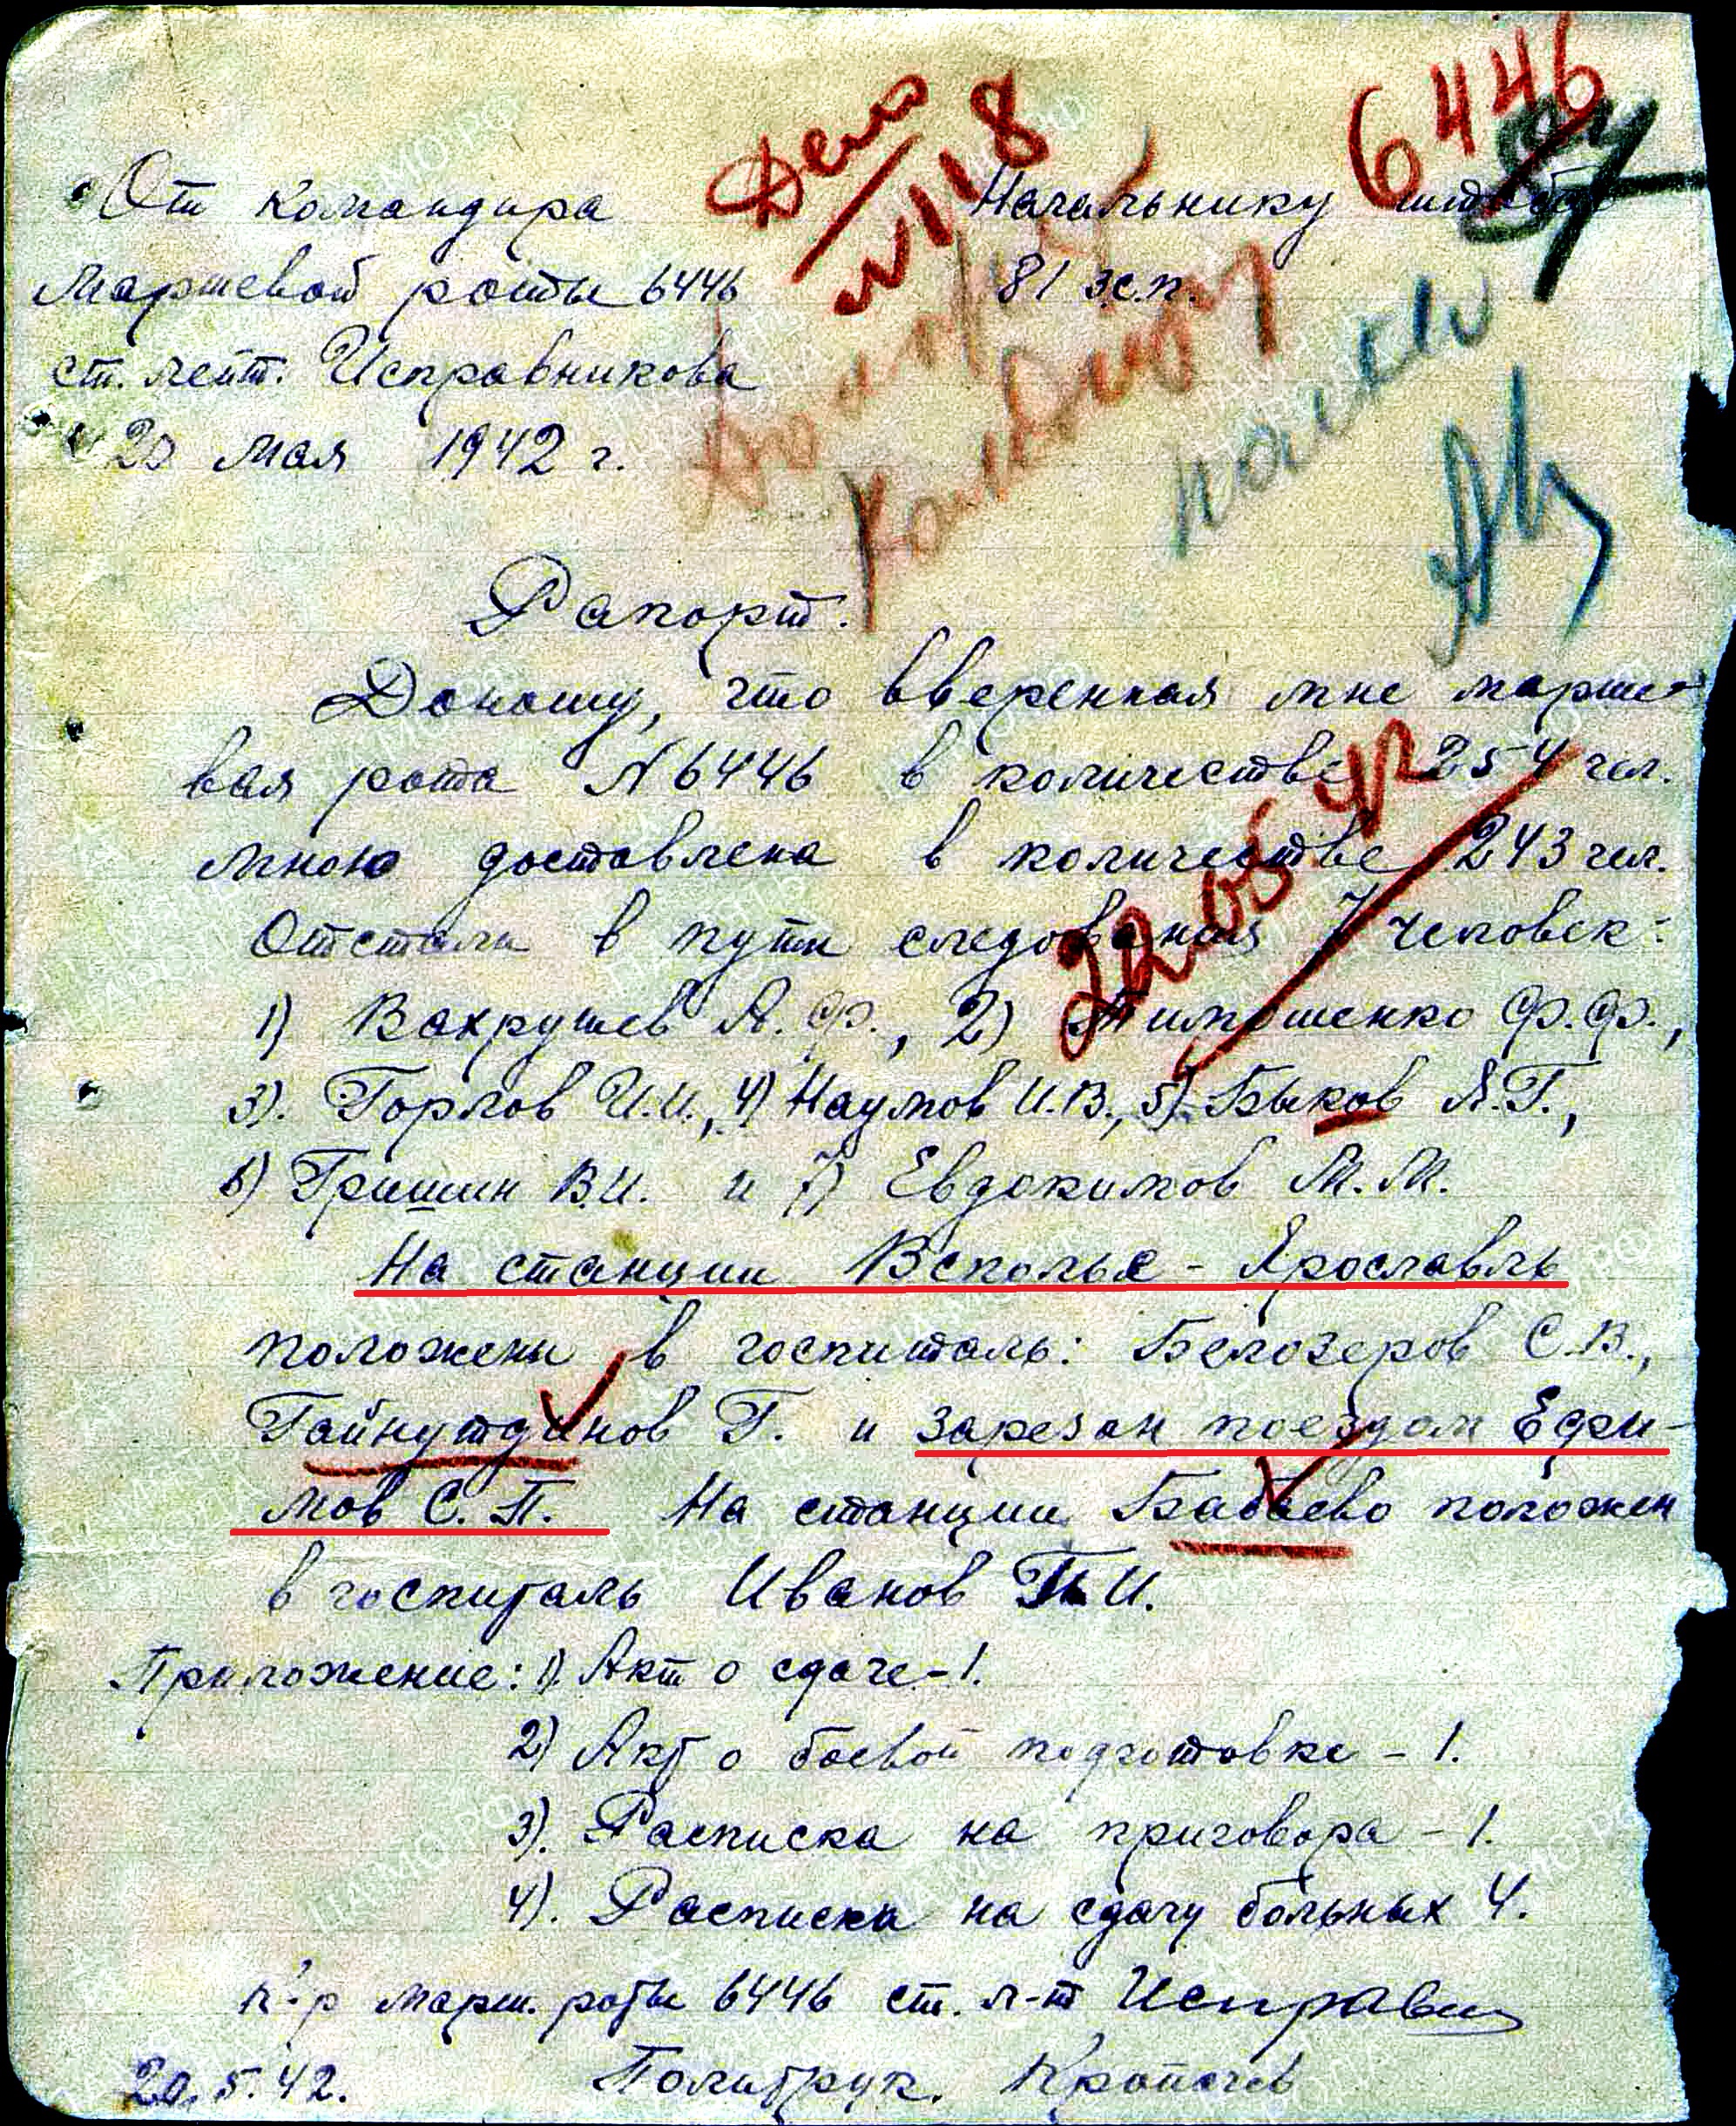 6446
Дело
№118
От командира
Начальнику штаба
маршевой роты 6446
81 з.с.п.
ст. лейт. Исправникова
20 мая 1942 г.
Рапорт.
Доношу, что вверенная мне марше-
вая рота №6446 в количестве 254 чел.
мною доставлена в количестве 243 чел.
22.05.42
Отстали в пути следования 7 человек:
1) Вахрушев А.Ф., 2) Тимошенко Ф.Ф.,
3). Горлов И.И., 4) Наумов И.В., 5) Быков А.Г.,
6) Гришин В.И. и 7) Евдокимов М.М.
На станции Всполье - Ярославль
положены в госпиталь: Белозеров С.В.,
Гайнутдинов Г. и зарезан поездом Ефи-
мов С.П. На станции Бабаево положен
в госпиталь Иванов П.И.
Приложение: 1). Акт о сдаче - 1.
2) Акт о боевой подготовке - 1.
3). Расписка на приговора - 1.
4). Расписки на сдачу больных 4.
К-р марш. роты 6446 ст. л-т Исправн
20.5.42. Политрук. Кропачев